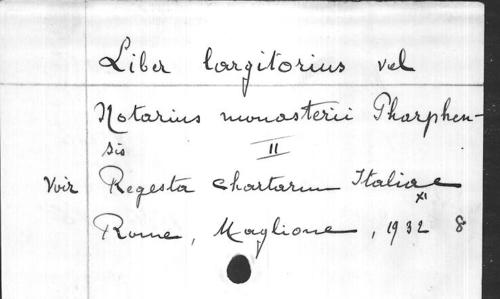 Liber largitorius vel
Notarius monasterii Pharphen-
sis II
Voir Regesta chartarum Italiae
XI
Rome, Maglione, 1932 8